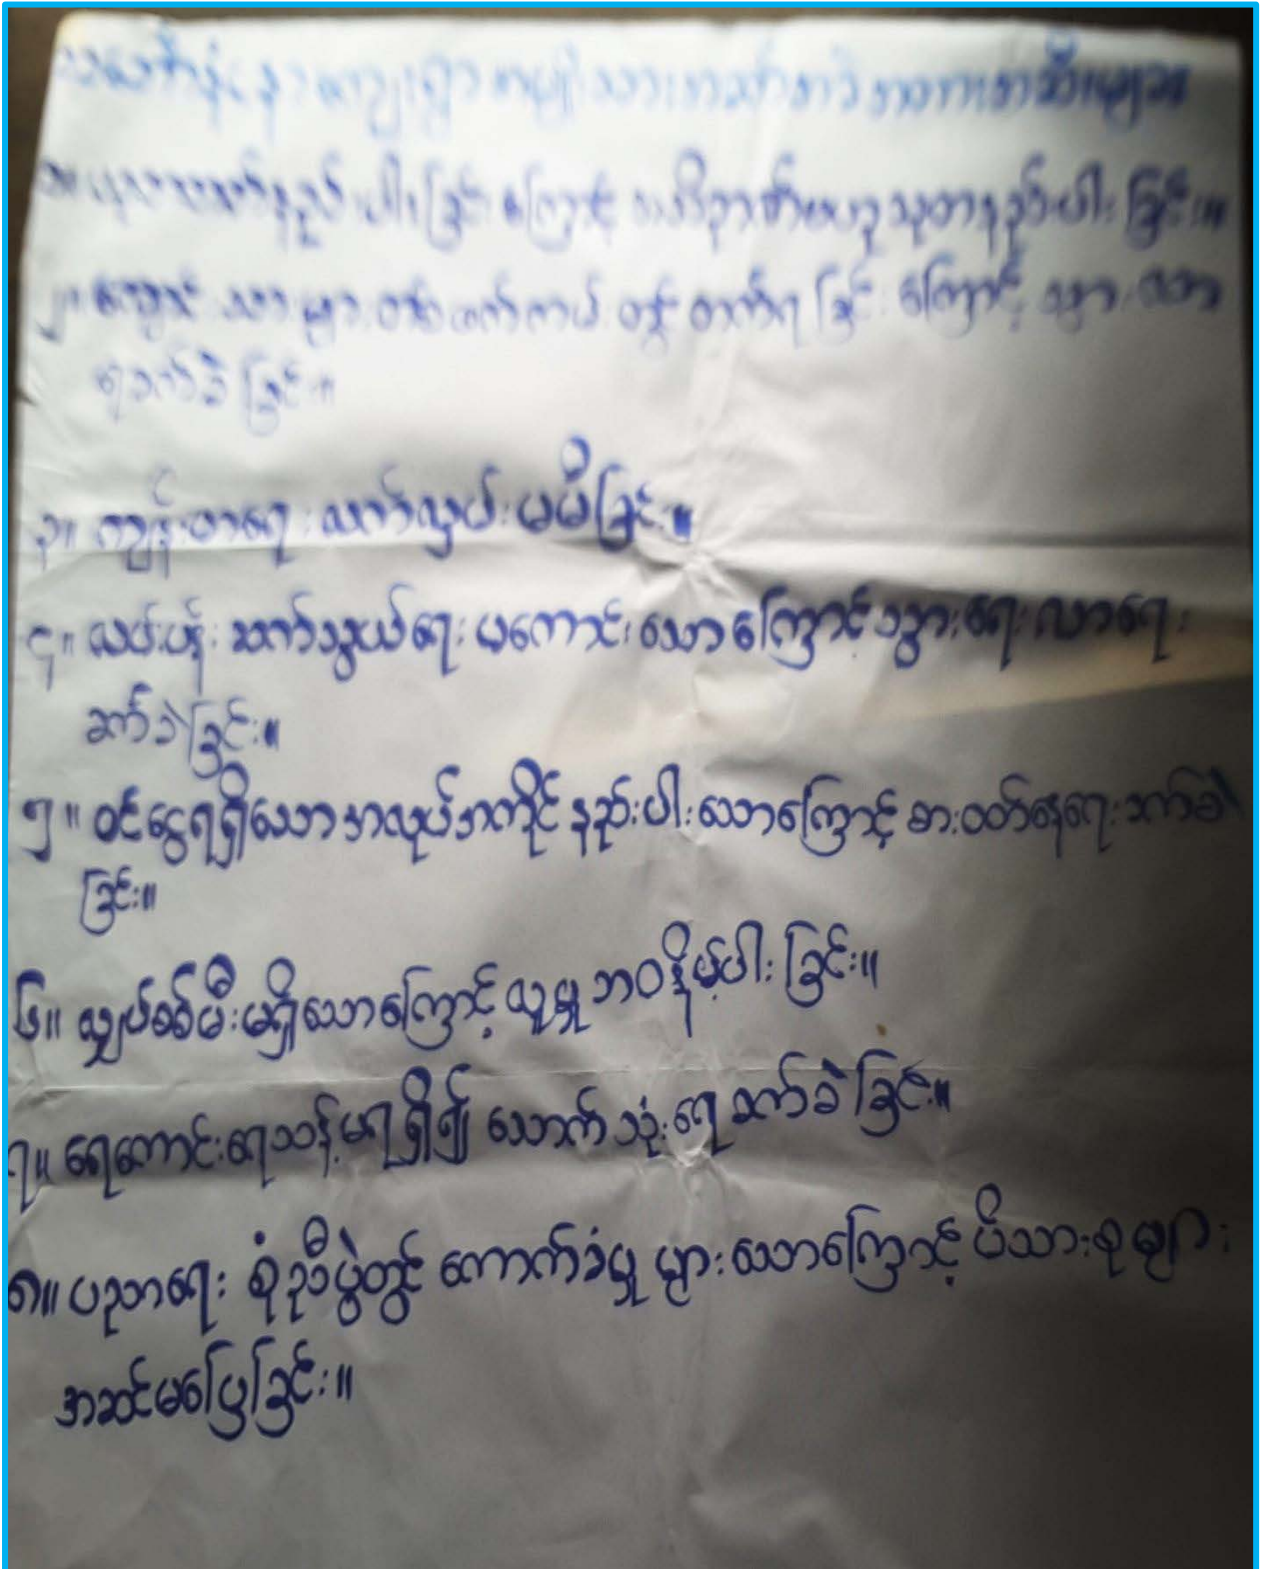 ကျေးရွာ အမျိုးသား အခက်အခဲ အတားအဆီးများ
နည်းပါးခြင်းကြောင့် ဗဟုသုတနည်းပါးခြင်း။
၂။ ကျောင်းသားများ တစ်ဖက်ကမ်းတွင် တက်ရခြင်းကြောင့် သွားလာ
ရခက်ခဲခြင်း။
၃။ ကျန်းမာရေး လက်လှမ်းမမီခြင်း။
၄။ လမ်းပန်းဆက်သွယ်ရေး မကောင်းသောကြောင့် သွားရေးလာရေး
ခက်ခဲခြင်း။
၅။ ဝင်ငွေရရှိသော အလုပ်အကိုင် နည်းပါးသောကြောင့် စားဝတ်နေရေးခက်ခဲ
ခြင်း။
၆။ လျှပ်စစ်မီးမရှိသောကြောင့် လူမှုဘဝနိမ့်ပါးခြင်း။
၇။ ရေကောင်းရေသန့်မရရှိ၍ သောက်သုံးရေခက်ခဲခြင်း။
၈။ ပညာရေး စုံညီပွဲတွင် ကောက်ခံမှုများသောကြောင့် မိသားစုများ
အဆင်မပြေခြင်း။